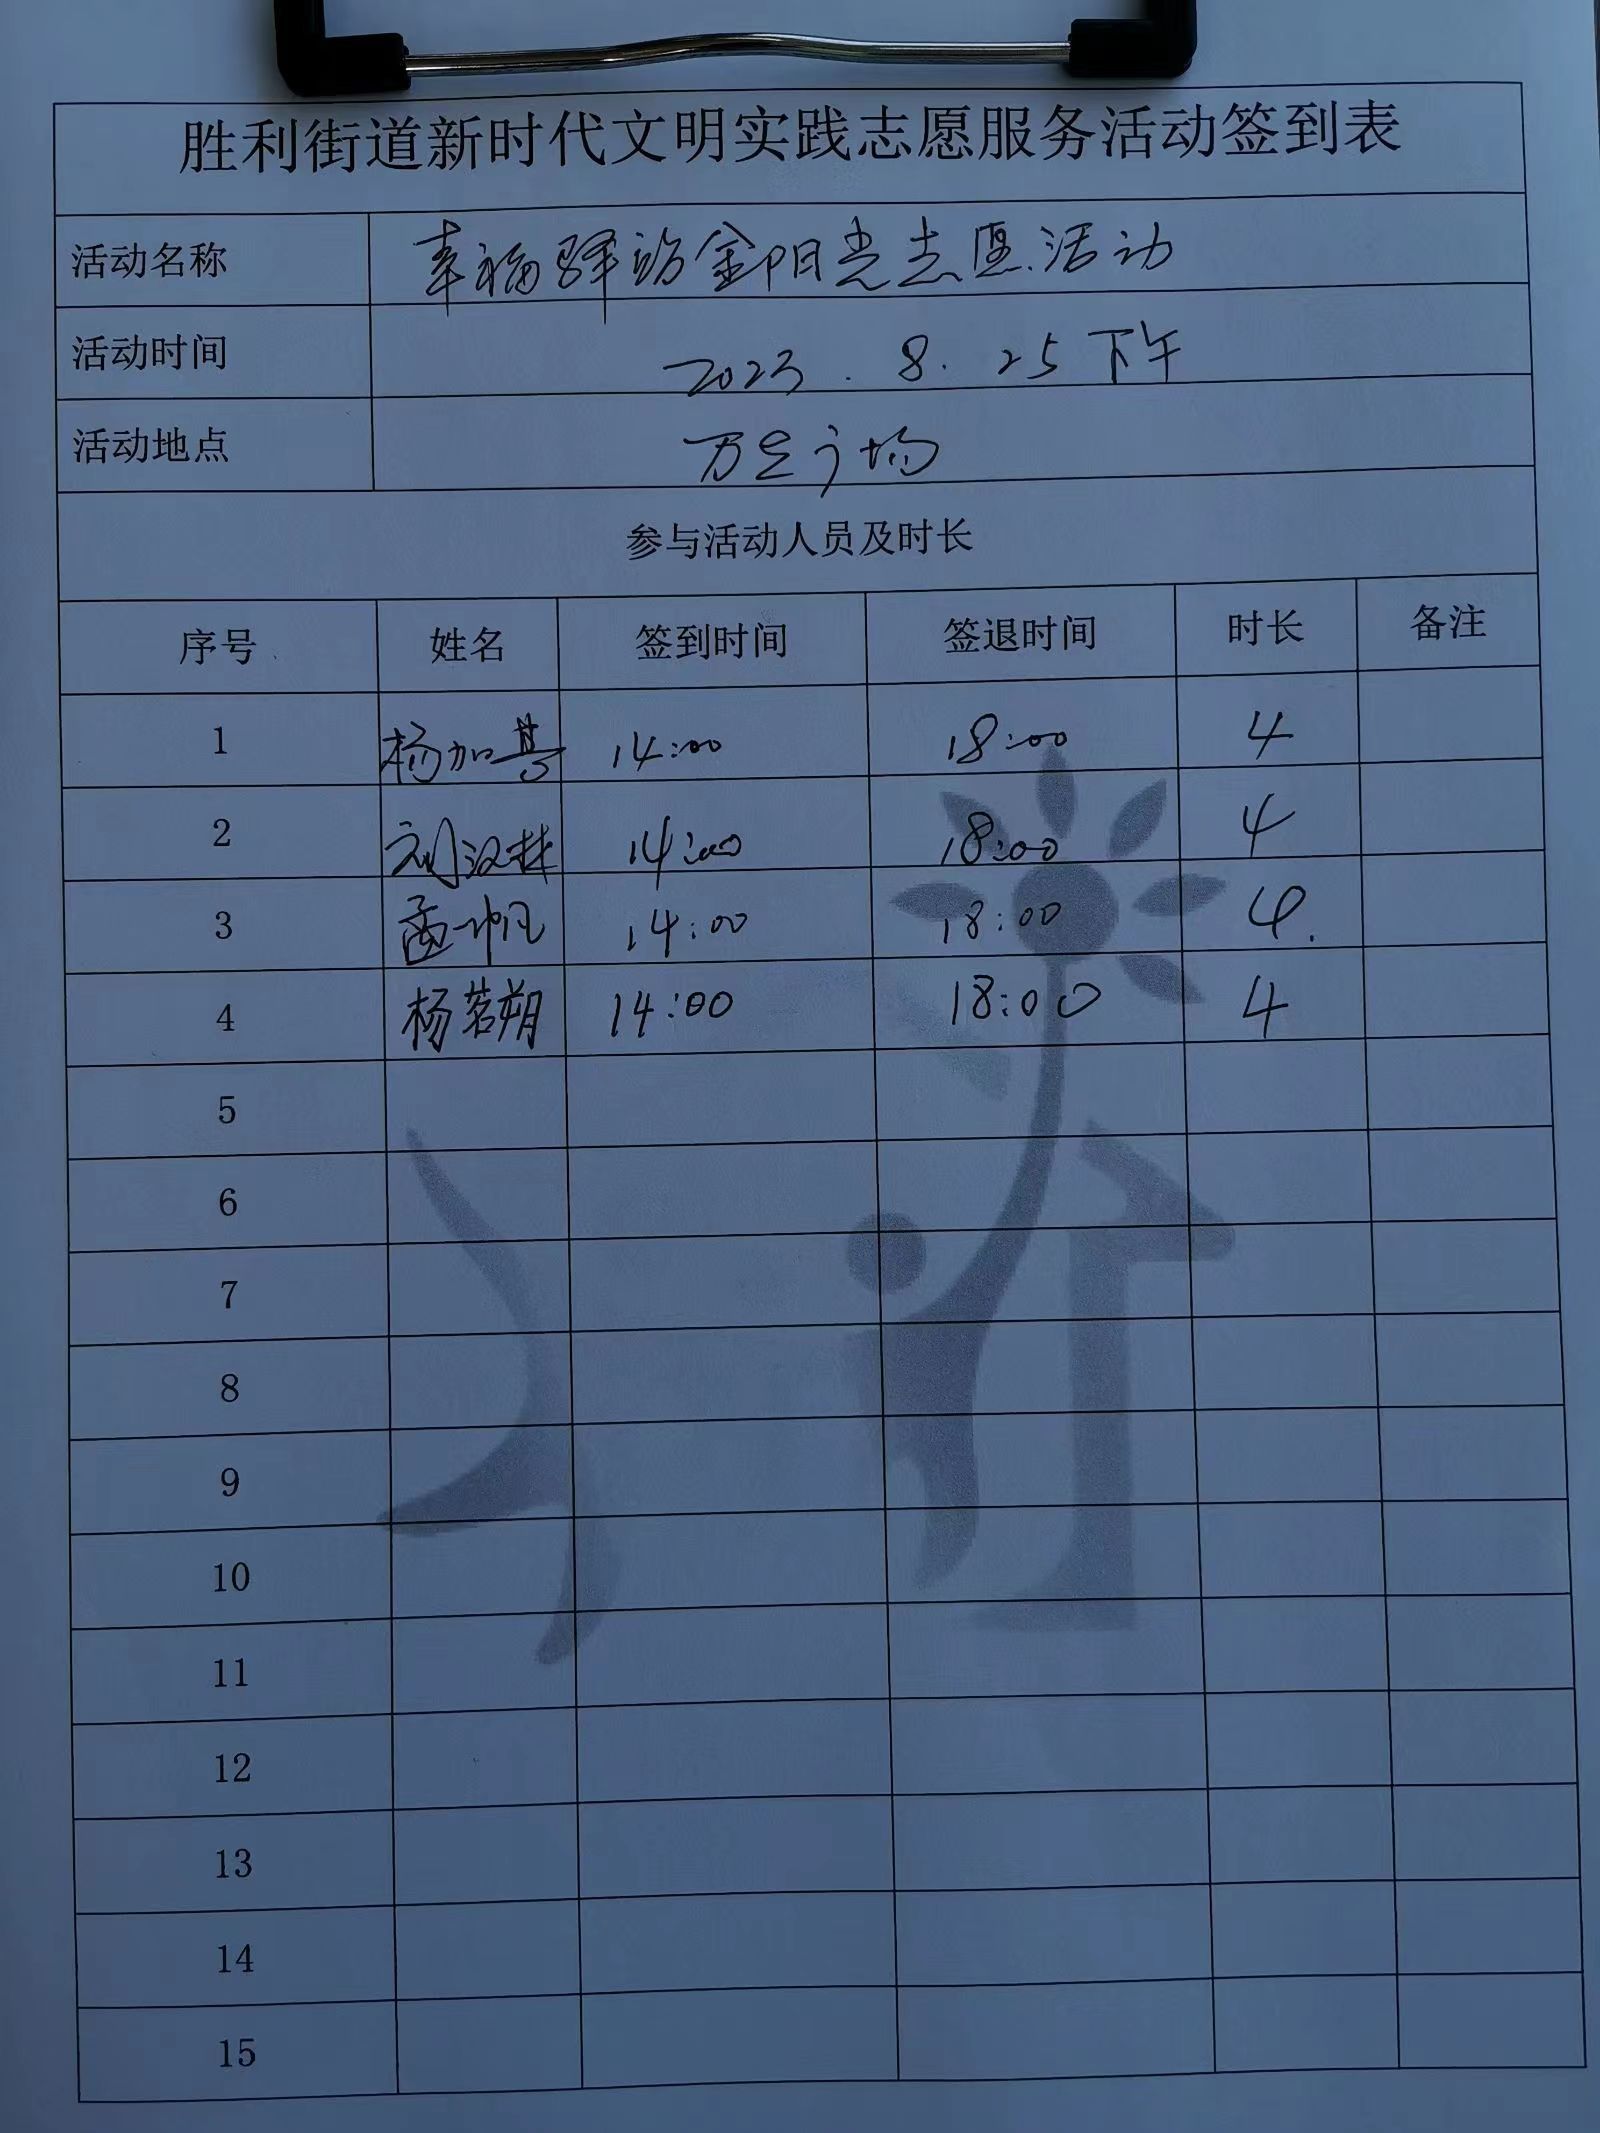 胜利街道新时代文明实践志愿服务活动签到表
活动名称 幸福驿站金阳光志愿活动
活动时间 2023.8.25下午
活动地点 万达广场
参与活动人员及时长
序号 姓名 签到时间 签退时间 时长 备注
1 杨加 14:00 18:00 4
2 刘汉林 14:00 18:00 4
3 孟帅凡 14:00 18:00 4.
4 杨茗朔 14:00 18:00 4
5
6
7
8
9
10
11
12
13
14
15